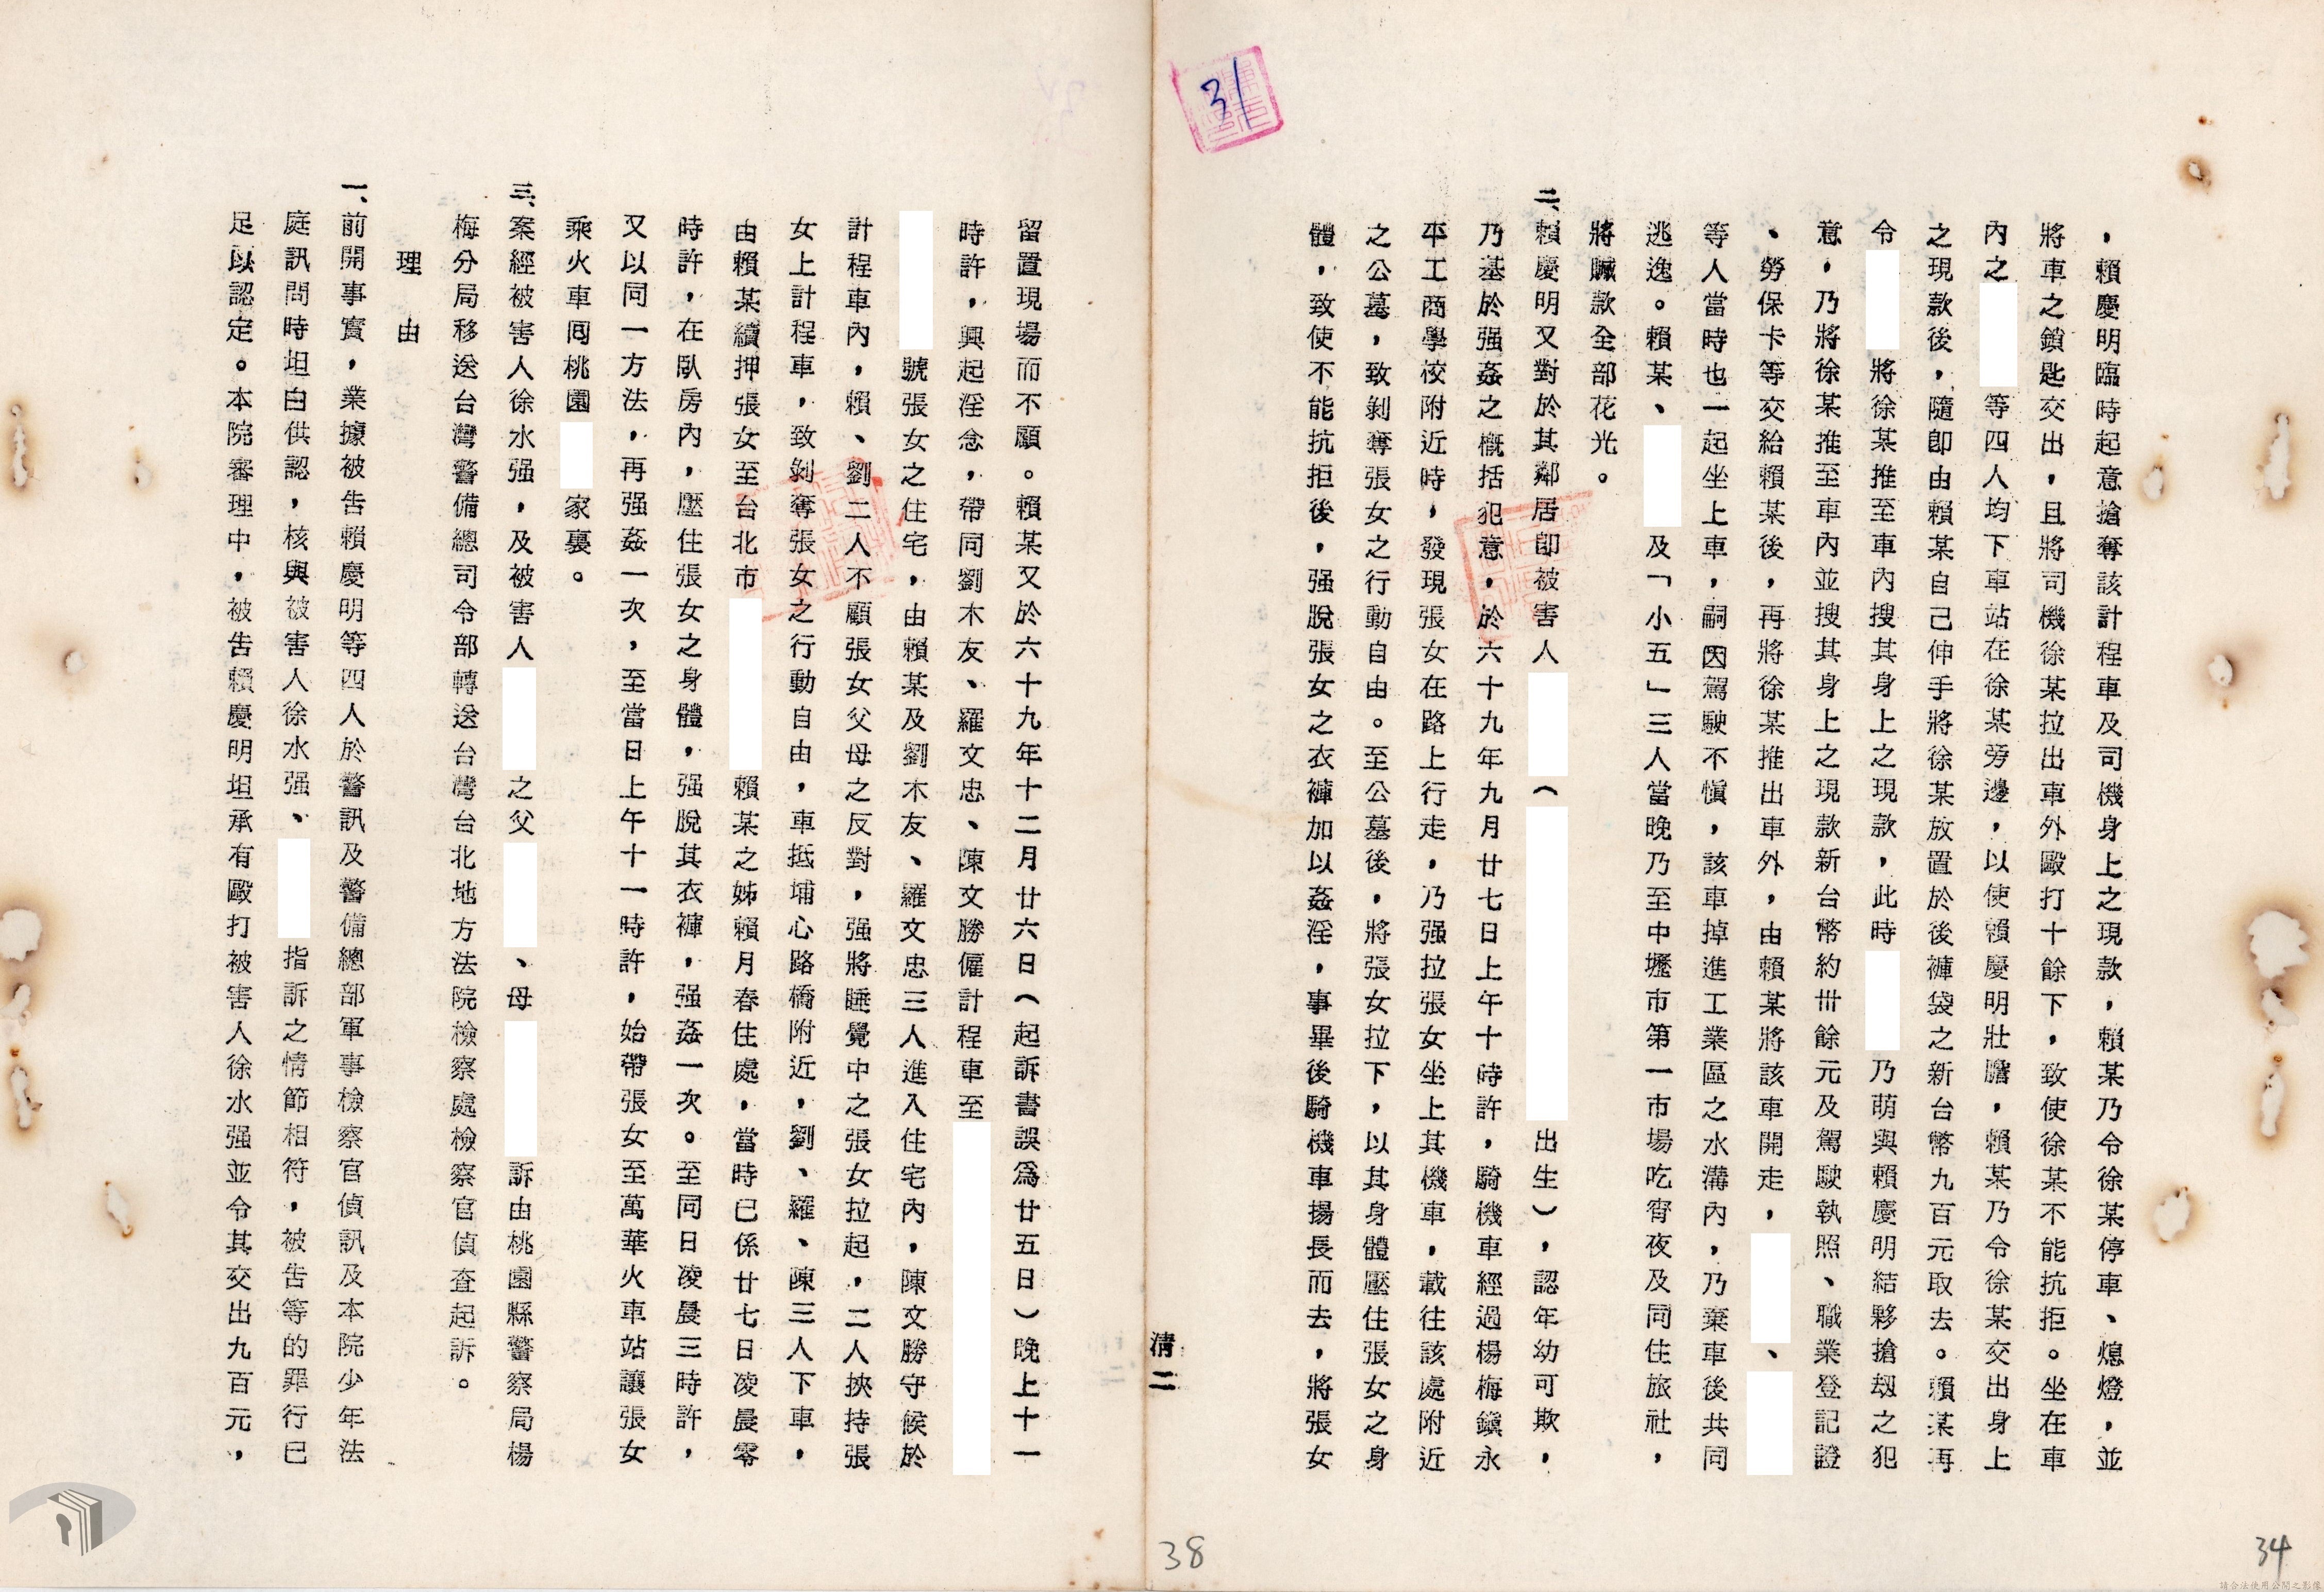 ，賴慶明臨時起意搶奪該計程車及司機身上之現款，賴某乃令徐某停車、熄燈，並
將車之鎖匙交出，且將司機徐某拉出車外毆打十餘下，致使徐某不能抗拒。坐在車
內之　　　等四人均下車站在徐某旁邊，以使賴慶明壯膽，賴某乃令徐某交出身上
之現款後，隨卽由賴某自己伸手將徐某放置於後褲袋之新台幣九百元取去。賴某再
令　　　將徐某推至車內搜其身上之現款，此時　　　乃萌與賴慶明結夥搶刼之犯
意，乃將徐某推至車內並搜其身上之現款新台幣約卅餘元及駕駛執照、職業登記證
、勞保卡等交給賴某後，再將徐某推出車外，由賴某將該車開走，　　　、　　　
等人當時也一起坐上車，嗣因駕駛不愼，該車掉進工業區之水溝內，乃棄車後共同
逃逸。賴某、　　　及「小五」三人當晚乃至中壢市第一市場吃宵夜及同住旅社，
將贓款全部花光。
二、賴慶明又對於其鄰居卽被害人　　　（　　　出生），認年幼可欺，
乃基於强姦之概括犯意，於六十九年九月廿七日上午十時許，騎機車經過楊梅鎭永
平工商學校附近時，發現張女在路上行走，乃强拉張女坐上其機車，載往該處附近
之公墓，致剝奪張女之行動自由。至公墓後，將張女拉下，以其身體壓住張女之身
體，致使不能抗拒後，强脫張女之衣褲加以姦淫，事畢後騎機車揚長而去，將張女
31
清二
38
34
留置現場而不顧。賴某又於六十九年十二月廿六日（起訴書誤爲廿五日）晚上十一
時許，興起淫念，帶同劉木友、羅文忠、陳文勝僱計程車至
號張女之住宅，由賴某及劉木友、羅文忠三人進入住宅內，陳文勝守候於
計程車內，賴、劉二人不顧張女父母之反對，强將睡覺中之張女拉起，二人挾持張
女上計程車，致剝奪張女之行動自由，車抵埔心路橋附近，劉、羅、陳三人下車，
由賴某續押張女至台北市　　　賴某之姊賴月春住處，當時已係廿七日凌晨零
時許，在臥房內，壓住張女之身體，强脫其衣褲，强姦一次。至同日凌晨三時許，
又以同一方法，再强姦一次，至當日上午十一時許，始帶張女至萬華火車站讓張女
乘火車囘桃園　　家裏。
三、案經被害人徐水强，及被害人　　　之父　　　、母　　　訴由桃園縣警察局楊
梅分局移送台灣警備總司令部轉送台灣台北地方法院檢察處檢察官偵查起訴。
理　由
一、前開事實，業據被告賴慶明等四人於警訊及警備總部軍事檢察官偵訊及本院少年法
庭訊問時坦白供認，核與被害人徐水强、　　　指訴之情節相符，被告等的罪行已
足以認定。本院審理中，被告賴慶明坦承有毆打被害人徐水强並令其交出九百元，
請合法使用公開之影像